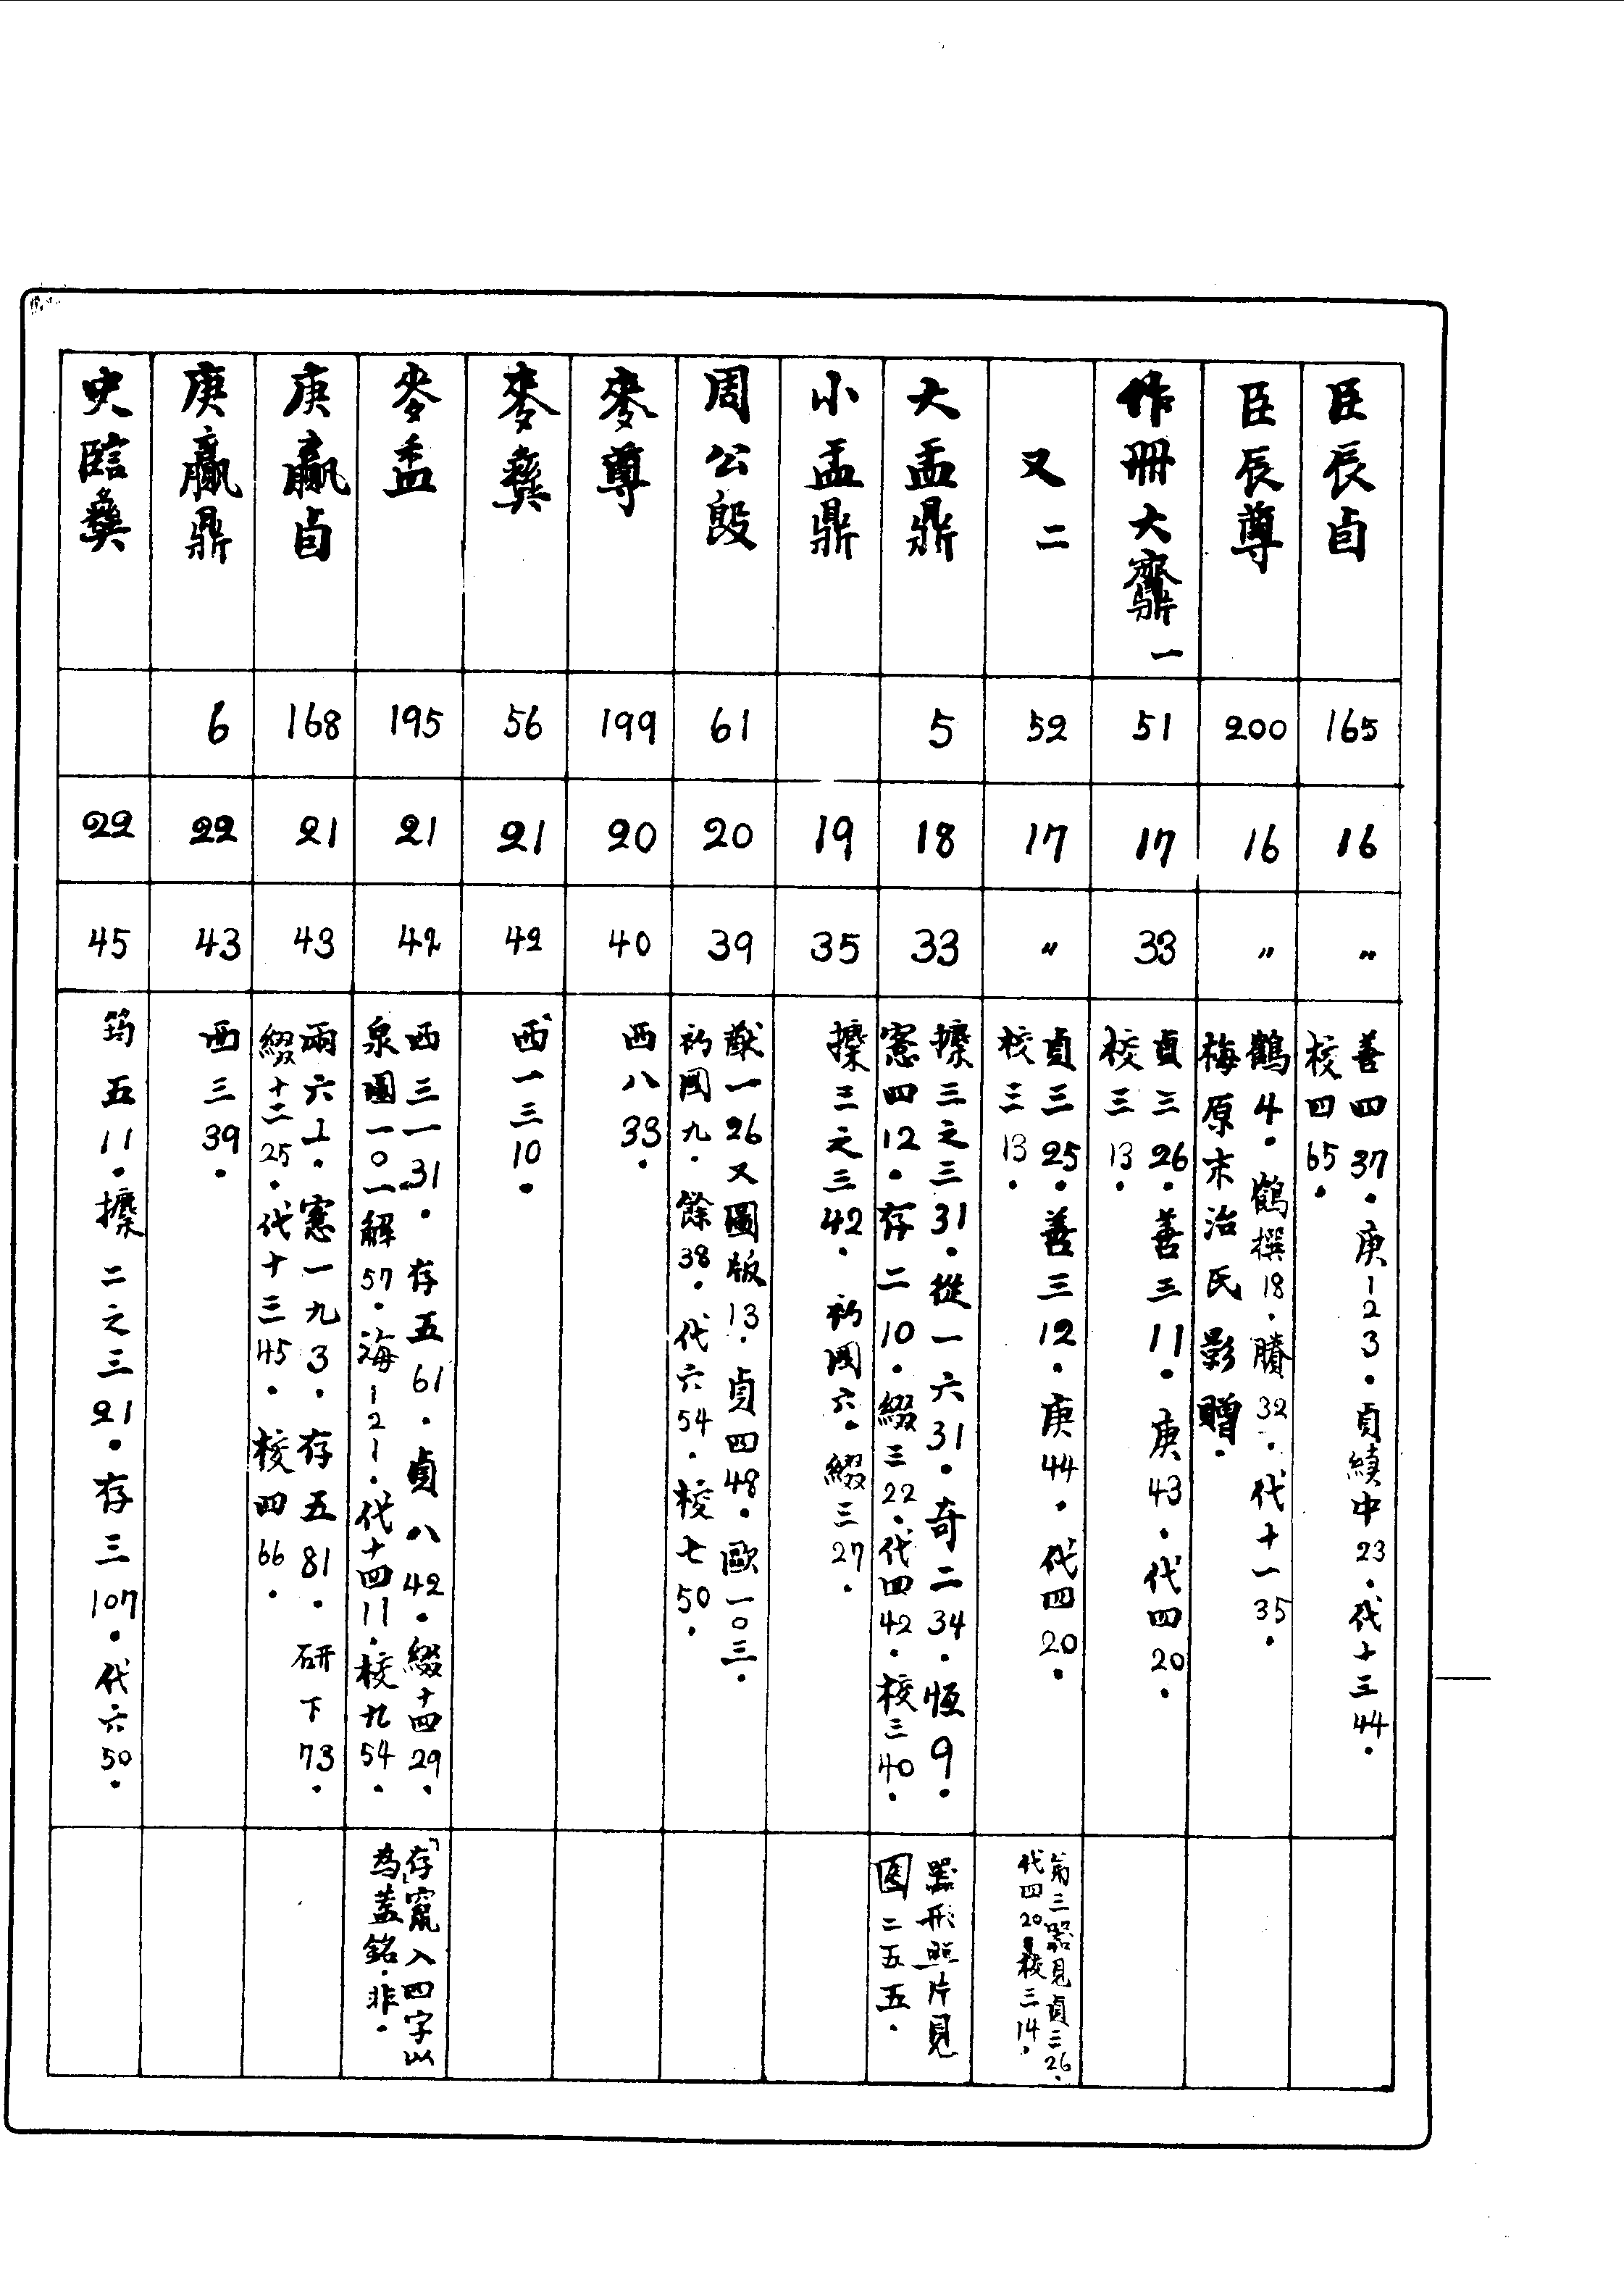 臣辰卣
165
16
〃
善四37．庚123．貞續中23．代十三44．
校四65．
臣辰尊
200
16
〃
鶴4．鶴撰18．賸32．代十一35．
梅原末治氏影贈．
作冊大鼒一
51
17
33
貞三26．善三11．庚43．代四20．
校三13．
又二
52
17
〃
貞三25．善三12．庚44．代四20．
校三13．
第三器見貞三26．
代四20校三14．
大盂鼎
5
18
33
攈三之三31．從一六31．奇二34．恆9．
愙四12．存二10．綴三22．代四42．校三40．
器形照片見
图二五五．
小盂鼎
19
35
攈三之三42．初國六．綴三27．
周公𣪘
61
20
39
猷一26又圖版13．貞四48．歐一〇三．
初國九．餘38．代六54．校七50．
麥尊
199
20
40
西八33．
麥彝
56
21
42
西一三10．
麥盉
195
21
42
西三一31．存五61．貞八42．綴十四29．
泉圖一〇一解57．海121．代十四11．校九54．
「存」窜入四字以
為蓋銘．非．
庚贏卣
168
21
43
兩六1．愙一九3．存五81．研下73．
綴十二25．代十三45．校四66．
庚贏鼎
6
22
43
西三39．
史䛗彝
22
45
筠五11．攈二之三21．存三107．代六50．